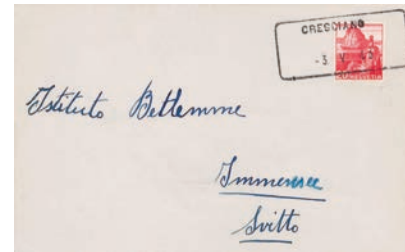 CRESCIANO
-3. V. 43
Istituto Betlemme
Immensee
Svitto